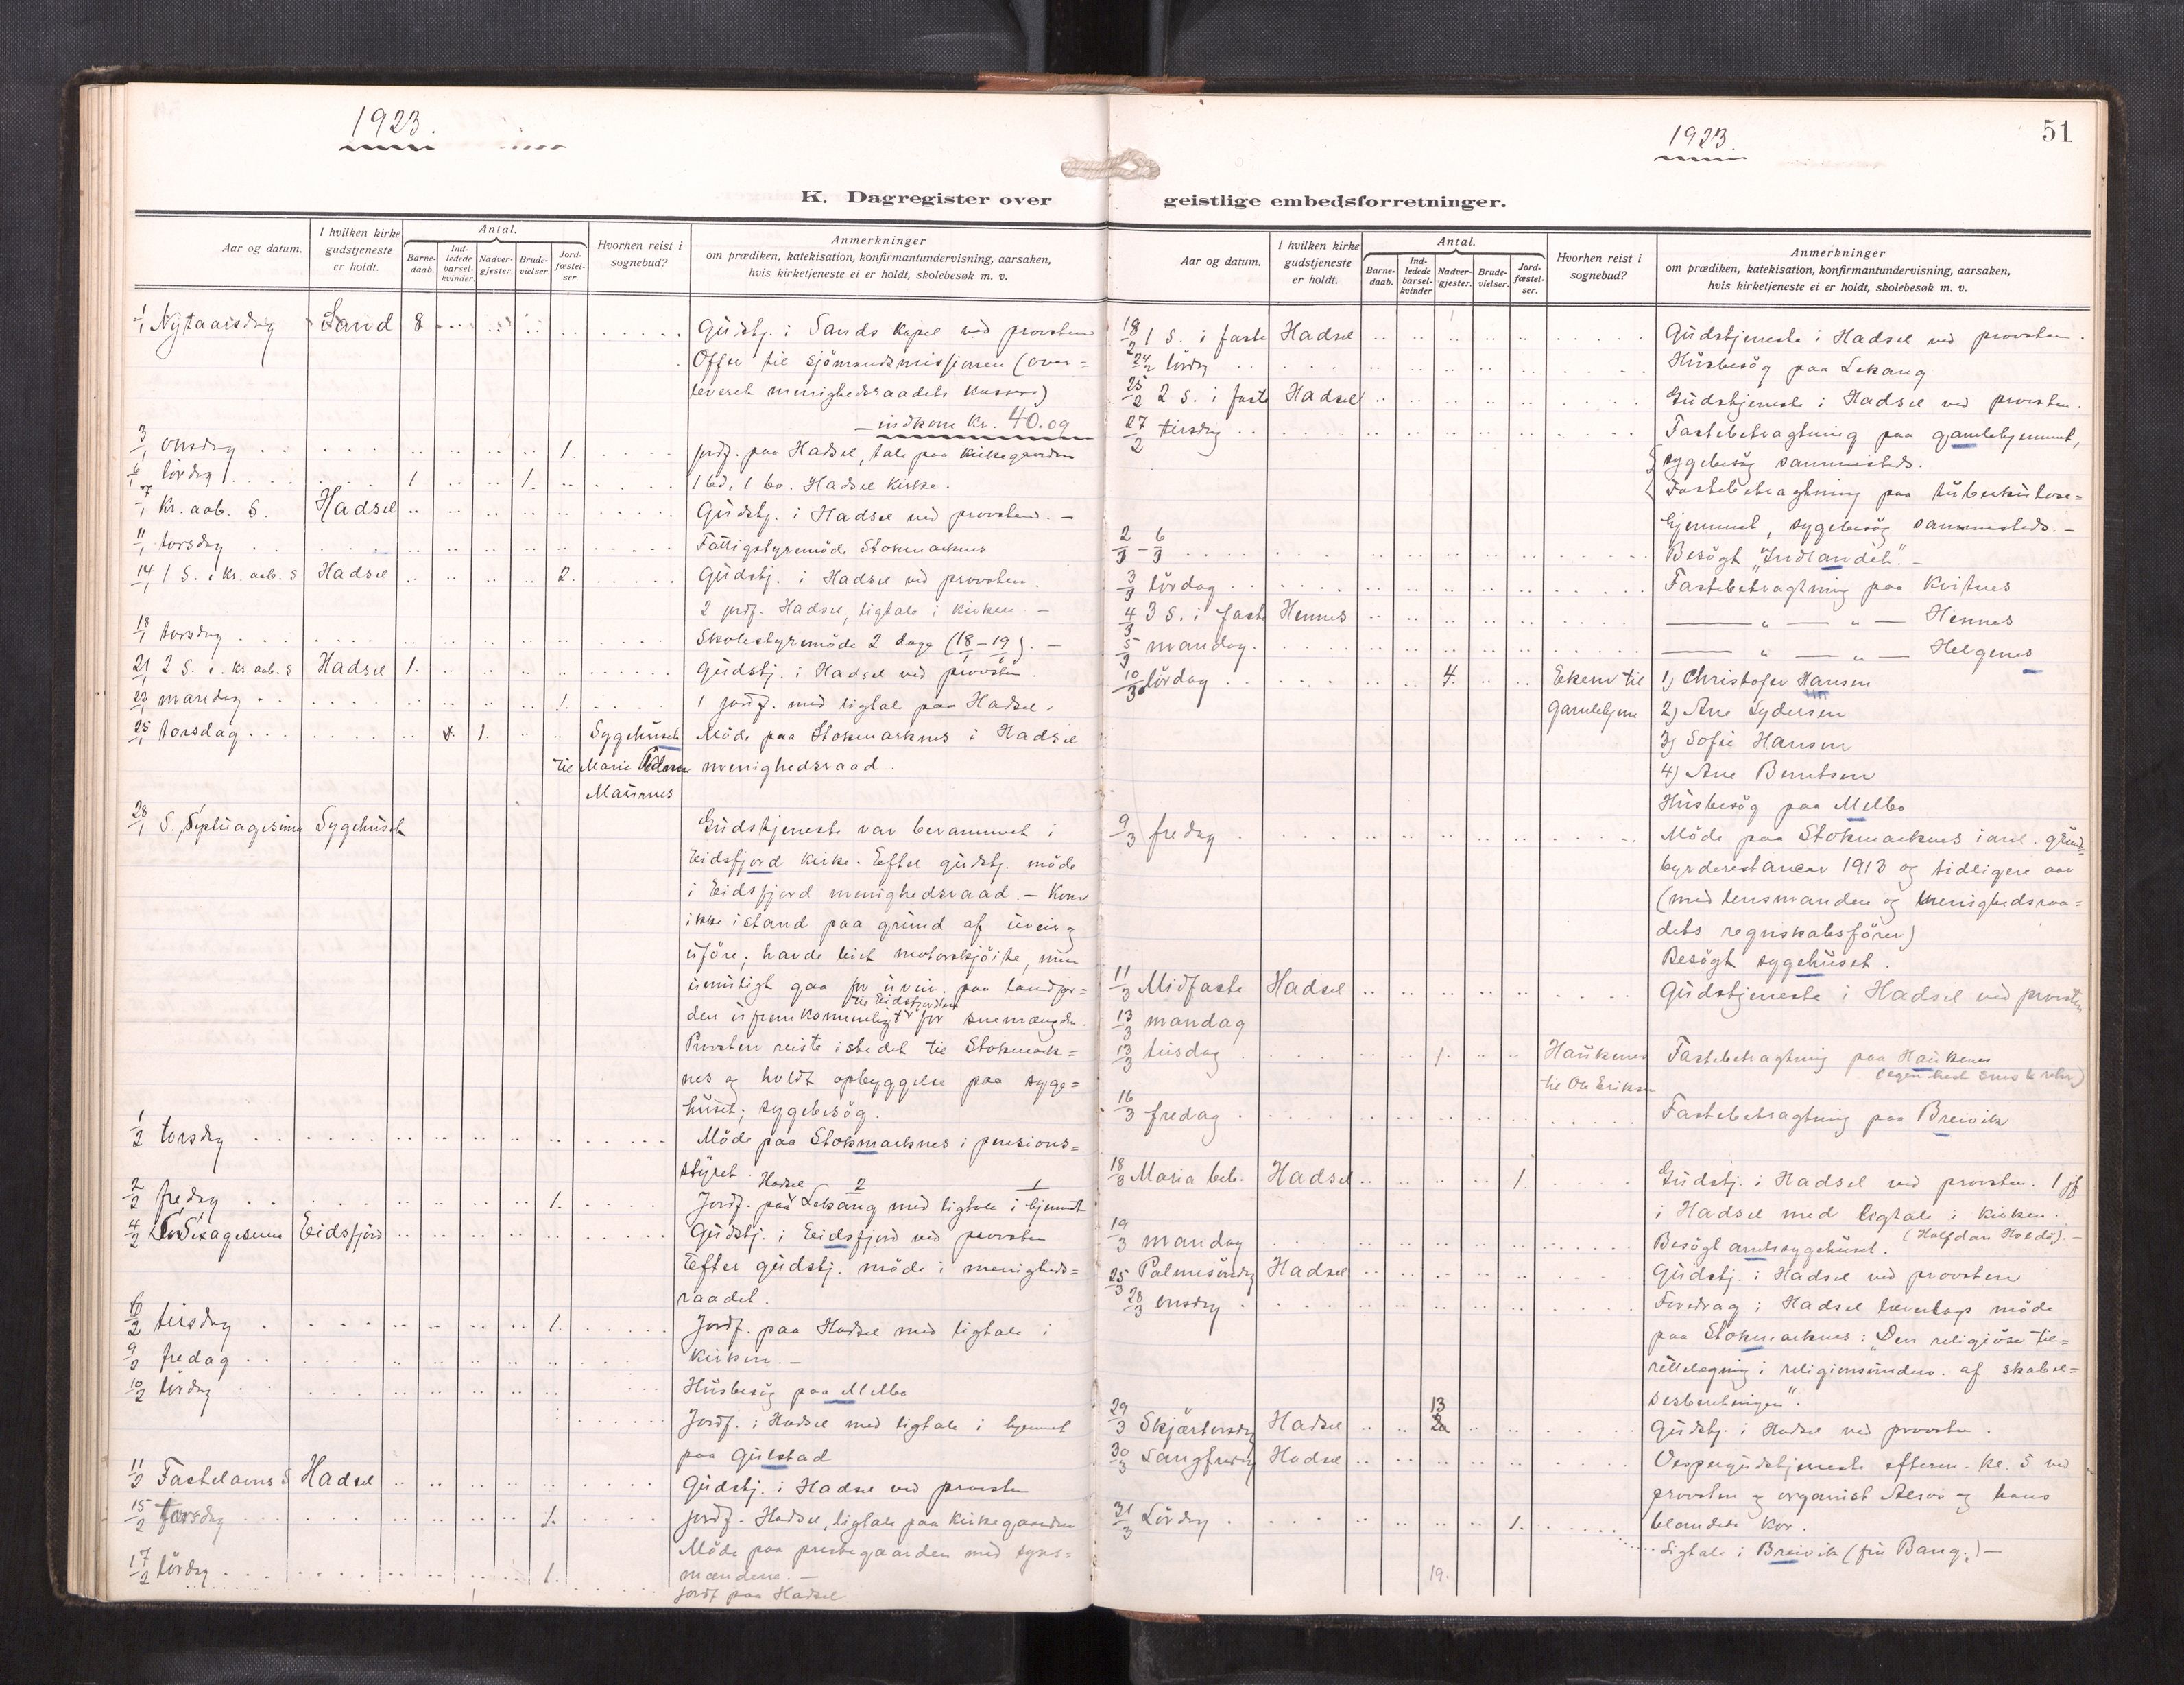 1923.
K. Dagregister over
Aar og datum.
I hvilken kirke gudstjeneste er holdt.
Antal.
Barnedaab.
Indledede barselkvinder
Nadvergjester.
Brudevielser.
Jordfæstelser.
Hvorhen reist i sognebud?
Anmerkninger
om prædiken, katekisation, konfirmantundervisning, aarsaken,
hvis kirketjeneste ei er holdt, skolebesøk m. v.
1/1 Nytaarsdag Sand 8 Gudstj. i Sands kapel ved provsten
Offer til sjömandsmissjonen (over=
leveret menighedsraadets kasser)
— indkom kr. 40.09
3/1 onsdag 1. jordf. paa Hadsel, tale paa kirkegaarden
6/1 lördag 1 1. 1 bd. 1 bv. Hadsel kirke.
7/1 Kr. aab. S. Hadsel Gudstj. i Hadsel ved provsten. —
11/1 torsdag Fattigstyremöde Stokmarknes
14/1 1 S. e. Kr. aab. S Hadsel 2. Gudstj. i Hadsel ved provsten.
2 jordf. Hadsel, ligtale i kirken. —
18/1 torsdag Skolestyremöde 2 dage (18–19/1). —
21/1 2 S. e. Kr. aab. S Hadsel 1. Gudstj. i Hadsel ved provsten.
23/1 mandag 1. 1 jordf. med ligtale paa Hadsel.
25/1 torsdag 1. Sygehuset Möde paa Stokmarknes i Hadsel
til Marie menighedsraad.
Maurnes
28/1 S. Septuagesima Sygehuset Gudstjeneste var berammet i
Eidsfjord kirke. Efter gudstj. möde
i Eidsfjord menighedsraad. — Kom
ikke istand paa grund af uveir og
uföre; havde leiet motorskjöite, men
umuligt gaa for uveir. paa landjor=
til Eidsfjorden
den ufremkommeligt for snemængde.
Provsten reiste istedet til Stokmark=
nes og holdt opbyggelse paa syge=
huset; sygebesög.
1/2 torsdag Möde paa Stokmarknes i pensions=
styret.
Hadsel 2 1
2/2 fredag 1. Jordf. paa Lekang med ligtale i hjemmet
4/2 Sexagesima Eidsfjord Gudstj. i Eidsfjord ved provsten
Efter gudstj. möde i menigheds=
raadet.
6/2 tirsdag 1. Jordf. paa Hadsel med ligtale i
9/2 fredag kirken. —
10/2 lördag Husbesög paa Melbo
Jordf. i Hadsel med ligtale i hjemmet
paa Gulstad
11/2 Fastelavns S Hadsel Gudstj. i Hadsel ved provsten
15/2 Torsdag 1. jordf. Hadsel, ligtale paa kirkegaarden
Möde paa prestegaarden med syns=
17/2 lördag 1. mændene. —
jordf paa Hadsel
1923.
51
geistlige embedsforretninger.
Aar og datum.
I hvilken kirke gudstjeneste er holdt.
Antal.
Barnedaab.
Indledede barselkvinder
Nadvergjester.
Brudevielser.
Jordfæstelser.
Hvorhen reist i sognebud?
Anmerkninger
om prædiken, katekisation, konfirmantundervisning, aarsaken,
hvis kirketjeneste ei er holdt, skolebesøk m. v.
18/2 1 S. i faste Hadsel Gudstjeneste i Hadsel ved provsten.
24/2 lördag Husbesög paa Lekang
25/2 2 S. i faste Hadsel Gudstjeneste i Hadsel ved provsten.
27/2 tirsdag Fastebetragtning paa gamlehjemmet,
sygebesög sammesteds.
Fastebetragtning paa tuberkulose=
hjemmet, sygebesög sammesteds. —
2/3 – 6/3 Besögt "Indlandet". —
3/3 lördag Fastebetragtning paa Kvitnes
4/3 3 S. i faste Hennes — " — " — Hennes
5/3 mandag. — " — " — Helgenes
10/3 lördag 4. Ekern til 1) Christofer Hansen
gamlehjem 2) Ane Sydersen
3) Sofie Hansen
4) Ane Berntsen
Husbesög paa Melbo
9/3 fredag Möde paa Stokmarknes i anl. grund=
byrderestancer 1913 og tidligere aar
(med lensmanden og menighedsraa=
dets regnskabsförer)
Besögt sygehuset.
11/3 Midfaste Hadsel Gudstjeneste i Hadsel ved provsten
13/3 mandag
13/3 tirsdag 1. Haukenes Fastebetragtning paa Haukenes
til Ole Eriksen
16/3 fredag Fastebetragtning paa Breivik
18/3 Maria beb. Hadsel 1. Gudstj. i Hadsel ved provsten. 1 jf
i Hadsel med ligtale i kirken.
19/3 mandag Besögt amtssygehuset. (Halfdan Holdö). —
25/3 Palmesöndag Hadsel Gudstj. i Hadsel ved provsten
28/3 onsdag Foredrag i Hadsel lærerlags möde
paa Stokmarknes: "Den religiöse til=
rettelægning i religionsunderv. af skabel=
sesberetningen".
29/3 Skjærtorsdag Hadsel 13 Gudstj. i Hadsel ved provsten.
30/3 Langfredag Hadsel Vespergudstjeneste efterm. kl. 5 ved
provsten og organist og hans
31/3 Lördag 1. blandede kor.
Ligtale i Breivik (fru Bang.) —
19.